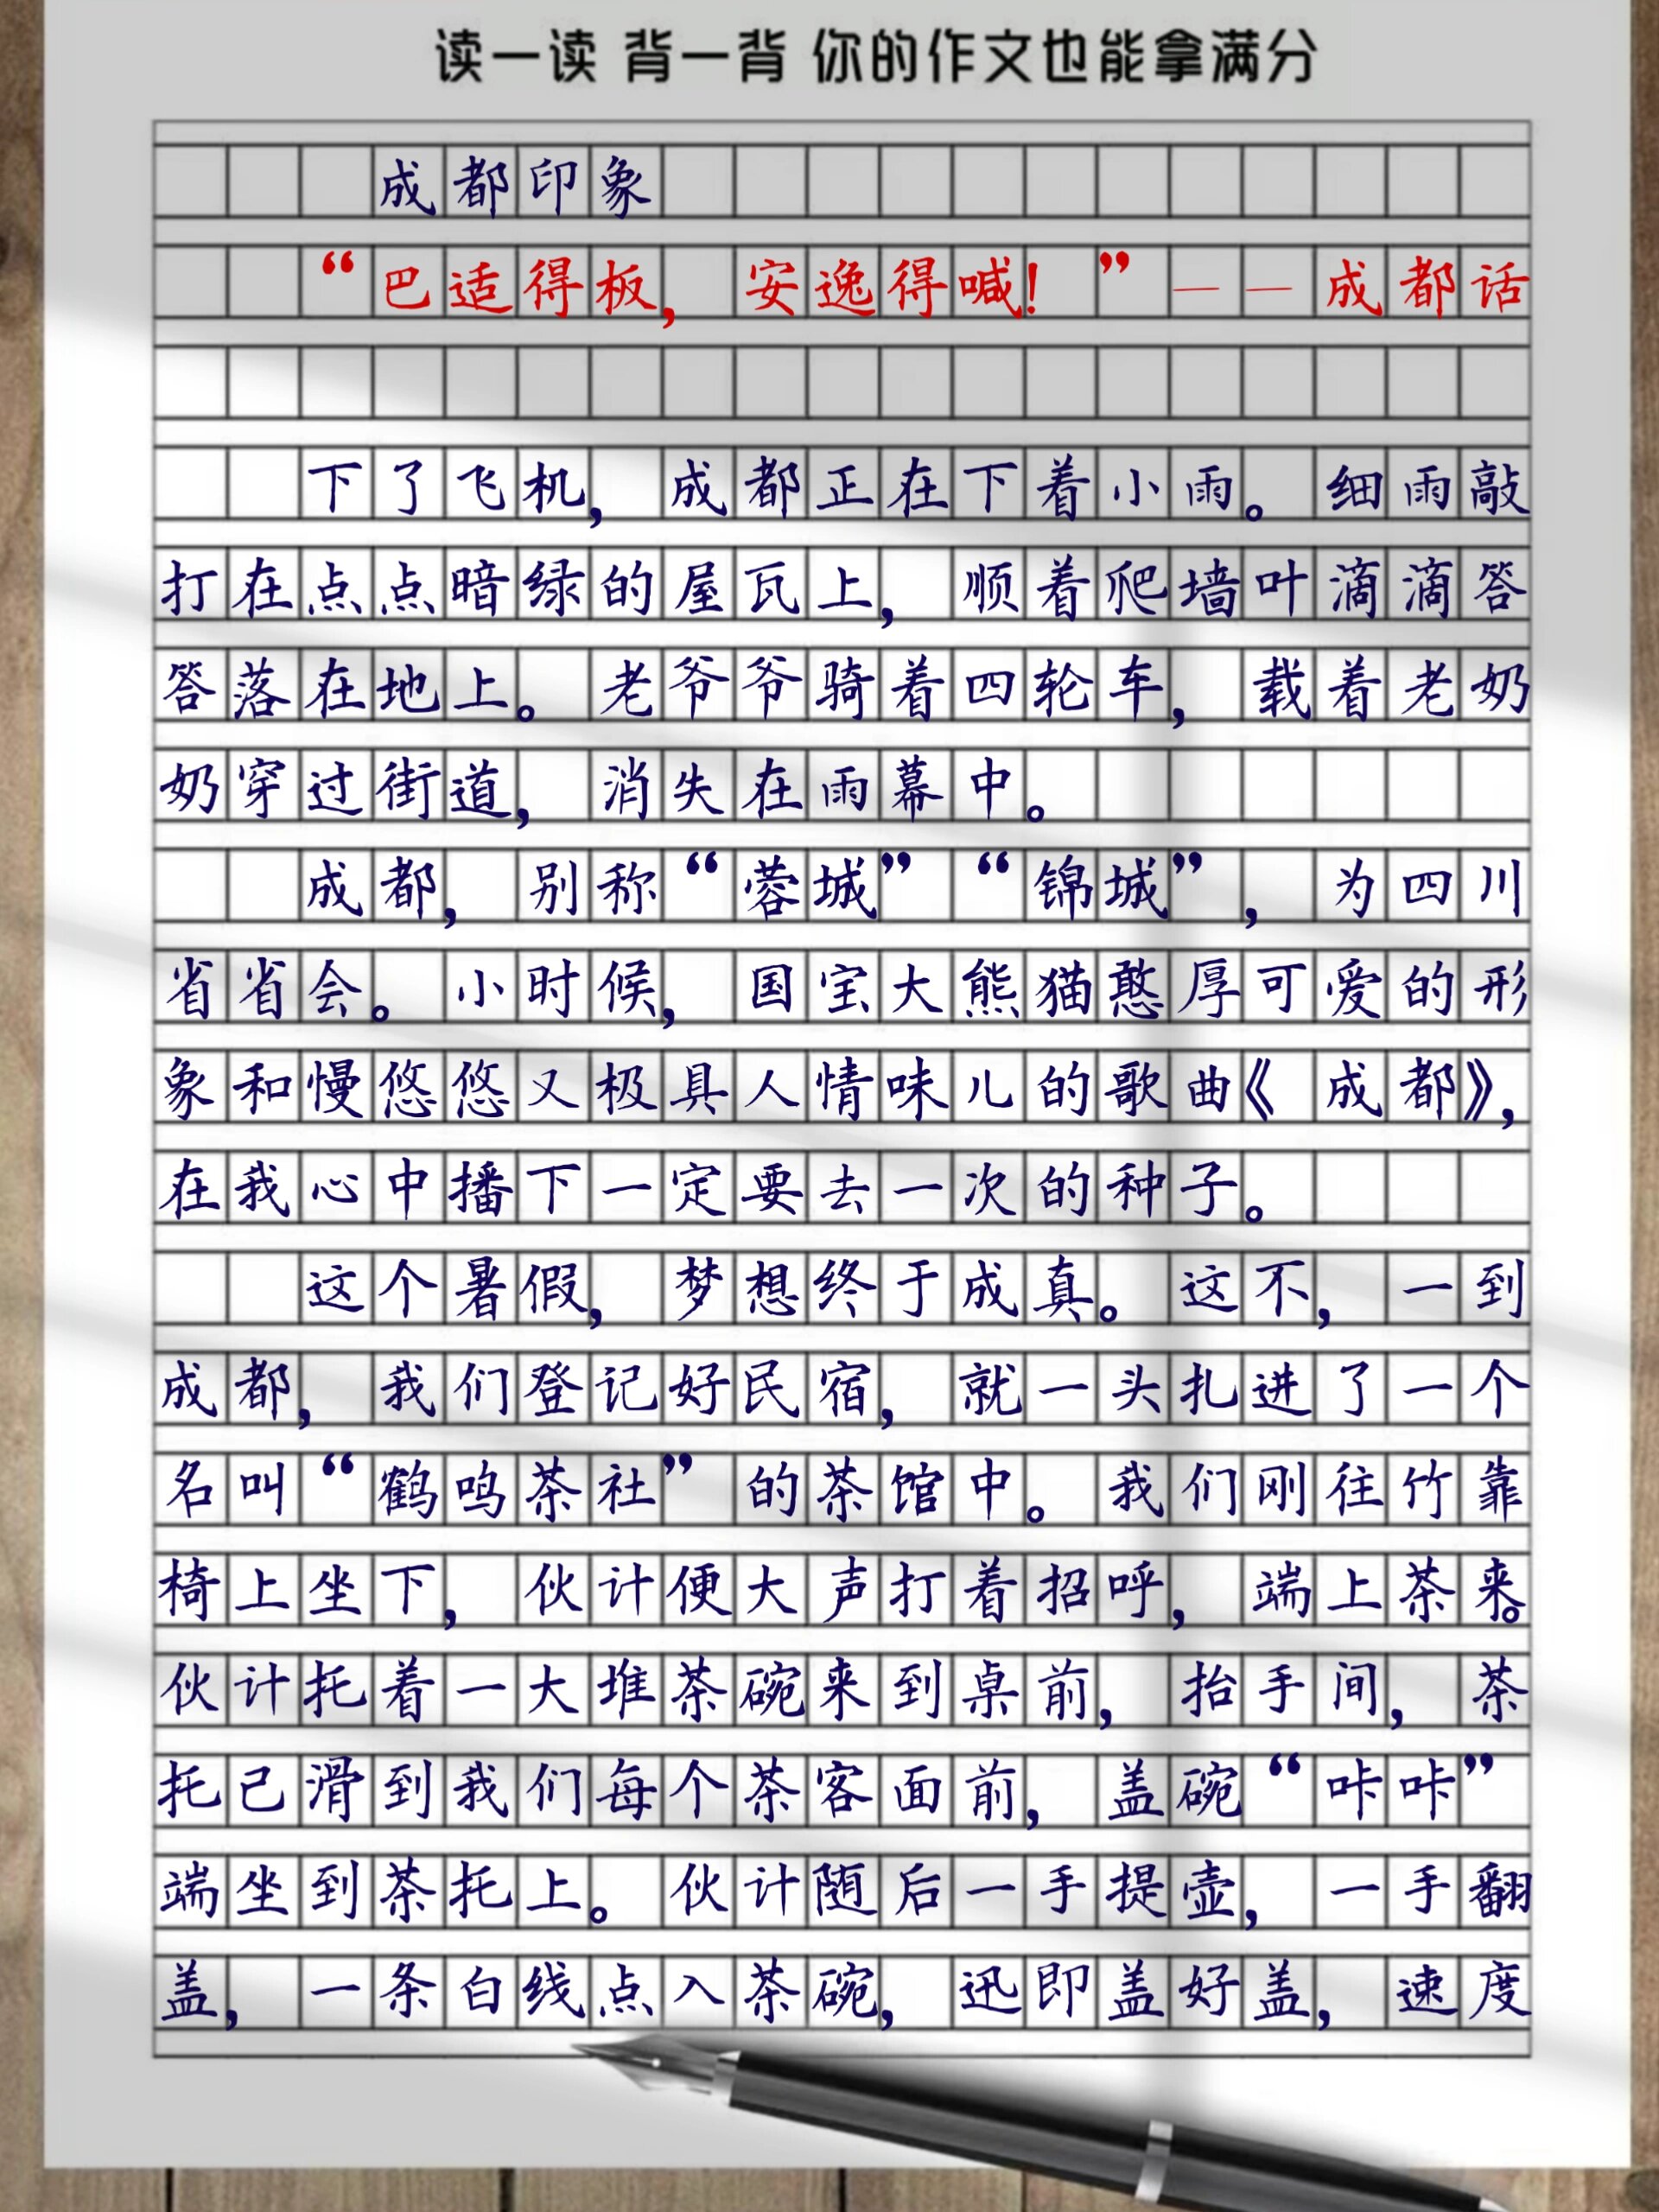 读一读 背一背 你的作文也能拿满分
成都印象
“巴适得板，安逸得喊！”——成都话
下了飞机，成都正在下着小雨。细雨敲
打在点点暗绿的屋瓦上，顺着爬墙叶滴滴答
答落在地上。老爷爷骑着四轮车，载着老奶
奶穿过街道，消失在雨幕中。
成都，别称“蓉城”“锦城”，为四川
省省会。小时候，国宝大熊猫憨厚可爱的形
象和慢悠悠又极具人情味儿的歌曲《成都》，
在我心中播下一定要去一次的种子。
这个暑假，梦想终于成真。这不，一到
成都，我们登记好民宿，就一头扎进了一个
名叫“鹤鸣茶社”的茶馆中。我们刚往竹靠
椅上坐下，伙计便大声打着招呼，端上茶来。
伙计托着一大堆茶碗来到桌前，抬手间，茶
托已滑到我们每个茶客面前，盖碗“咔咔”
端坐到茶托上。伙计随后一手提壶，一手翻
盖，一条白线点入茶碗，迅即盖好盖，速度